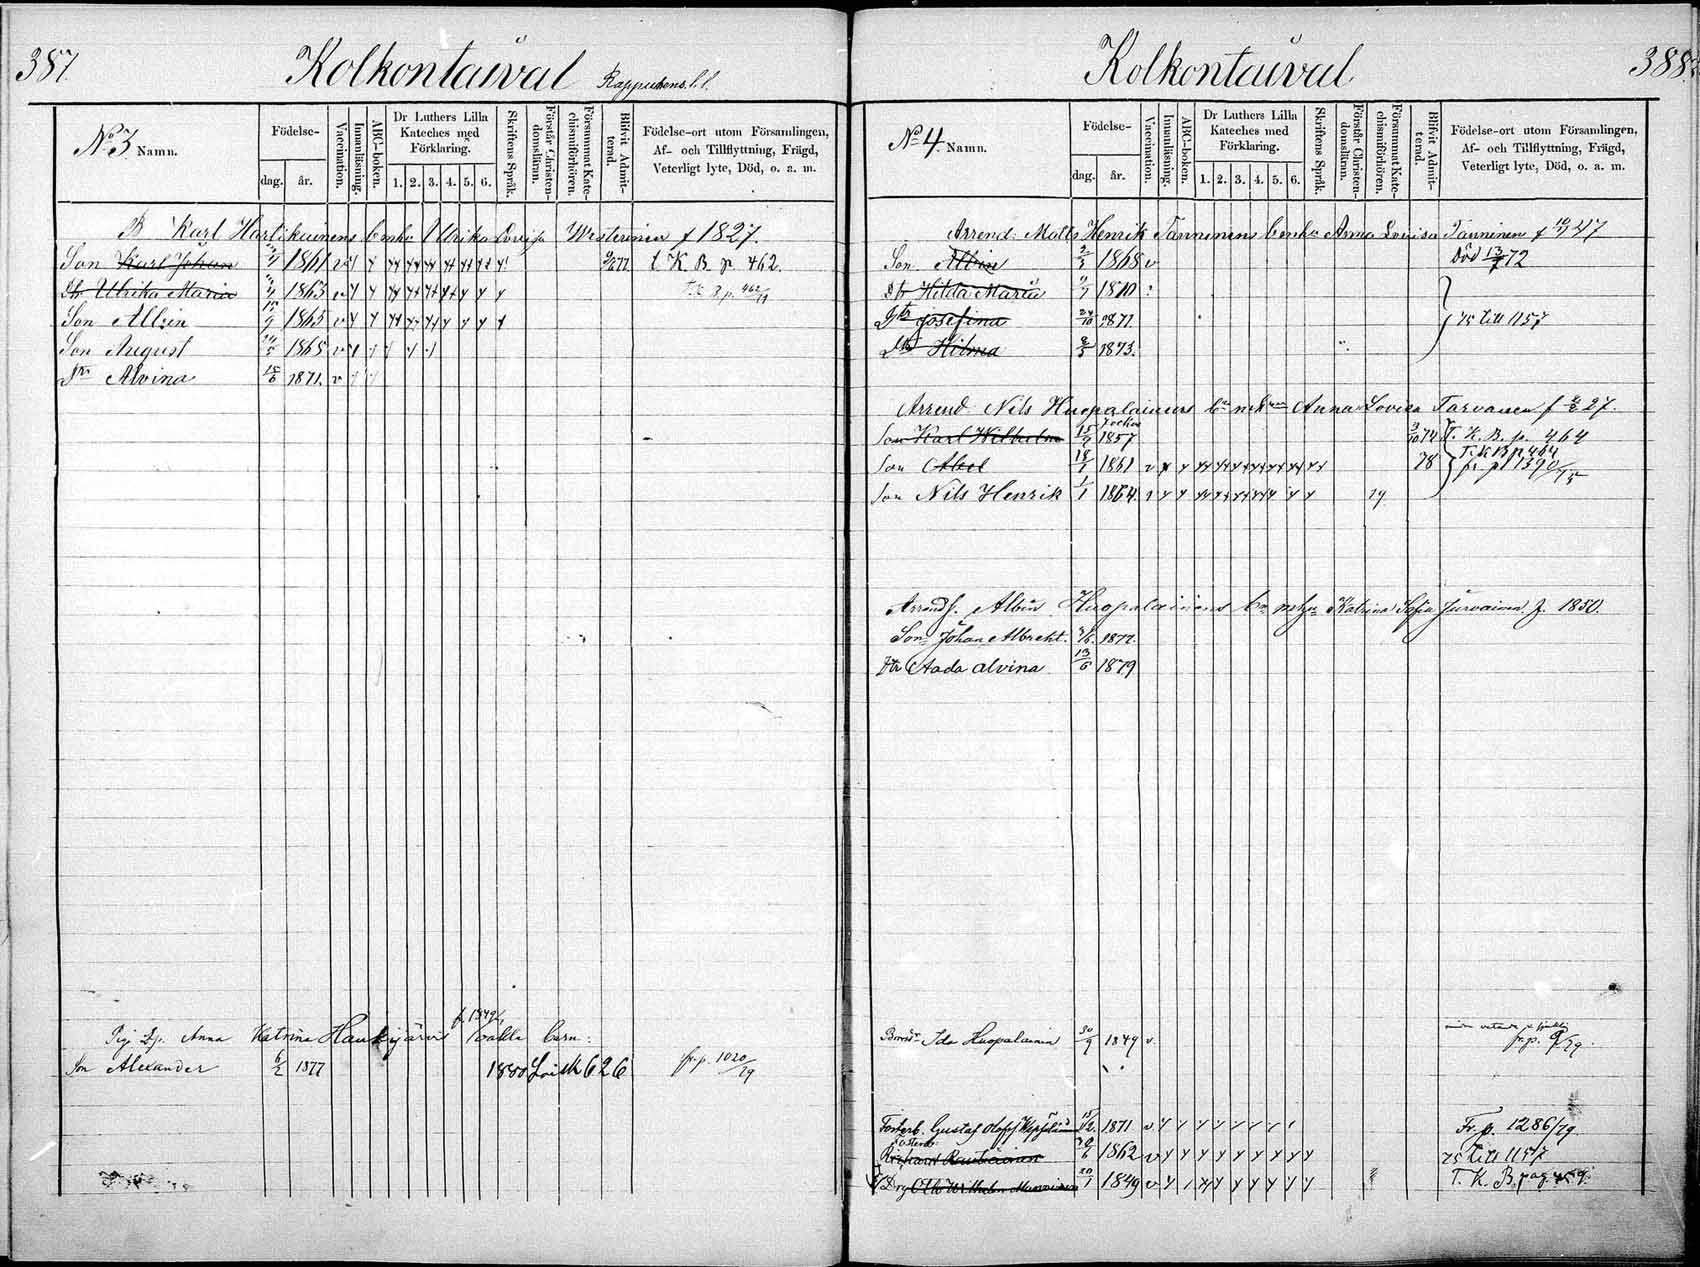 387.
Kolkontaival
N:o 3 Namn.
Födelse-
dag. år.
Vaccination.
Innanläsning.
ABC-boken.
Dr Luthers Lilla Kateches med Förklaring.
1. 2. 3. 4. 5. 6.
Skriftens Språk.
Förstår Christendomsläran.
Försummat Katechismiförhören.
Blifvit Admitterad.
Födelse-ort utom Församlingen,
Af- och Tillflyttning, Frägd,
Veterligt lyte, Död, o. a. m.
B Karl Hartikainens Enka Ulrika Lovisa Westerinen f 1827.
Son Karl Johan 1861 t. K. B. p. 462.
Dtr Ulrika Maria 1863 T. K. B. p. 462/79
Son Albin 15/9 1865
Son August 24/5 1868
Dtr Alvina 15/6 1871.
Anna Katrina Haukijärvi
Son Alexander 6/2 1877 1880 626 fr. p. 1020/79
Kolkontaival
388
N:o 4 Namn.
Födelse-
dag. år.
Vaccination.
Innanläsning.
ABC-boken.
Dr Luthers Lilla Kateches med Förklaring.
1. 2. 3. 4. 5. 6.
Skriftens Språk.
Förstår Christendomsläran.
Försummat Katechismiförhören.
Blifvit Admitterad.
Födelse-ort utom Församlingen,
Af- och Tillflyttning, Frägd,
Veterligt lyte, Död, o. a. m.
Arrend. Matts Henrik Tanninens Enka Anna Lovisa Tanninen f 47
Son Albin 1868 v Död 72
Dtr Hilda Maria 1870
Dtr Josefina 24/10 1871 75 till 1157
Dtr Hilma 1873.
Arrend Nils Huopalainens Anna Lovisa Tarvanen f 27.
Son Karl Wilhelm 15/9 1857 74 T. K. B. p. 464
Son Abel 18/1 1861 78 T. K. B. p 464
fr. p 1390/75
Son Nils Henrik 1/1 1864 79
Arrend. Albin Huopalainens Katrina Sofia f. 1850.
Son Johan Albrekt. 1877.
Dtr Aada Alvina 13/6 1879
Ida Huopalainen 30/9 1849 v. fr. p. 9/79.
Fosterb. Gustaf 1871 Fr. p. 1286/79
Fosterb. Rikhard Rautiainen 1862 75 till 1157
Otto Wilhelm 20/1 1849 T. K. B. pag. 459.